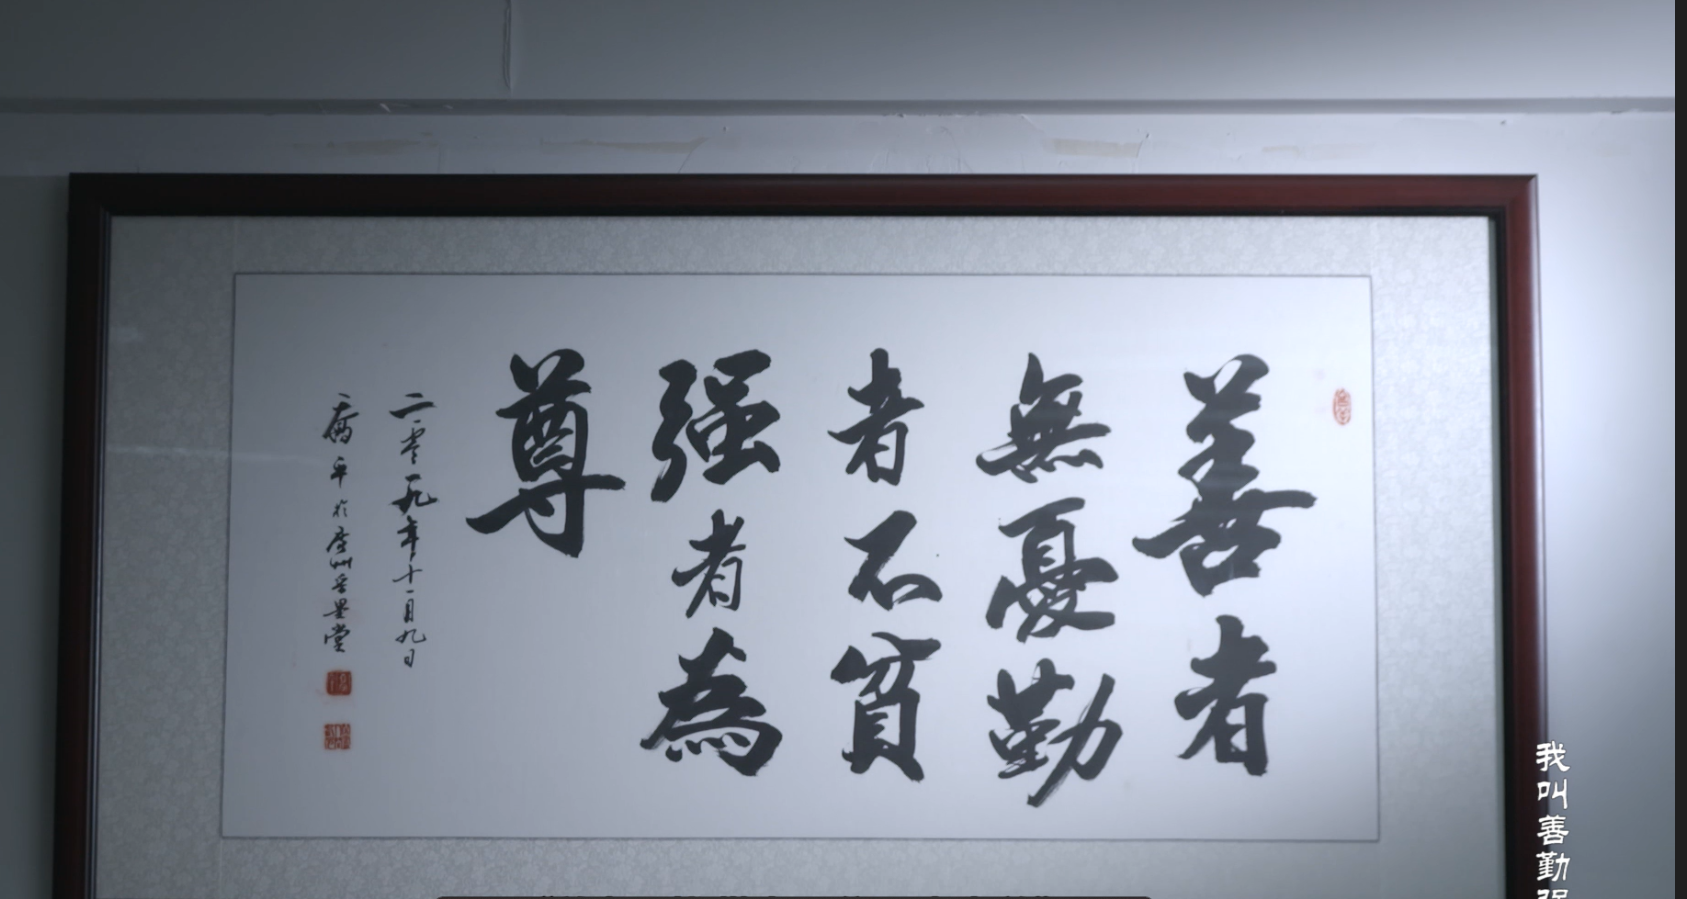 善者
無憂勤
者不貧
强者為
尊
二零一九年十一月九日
我叫善勤强